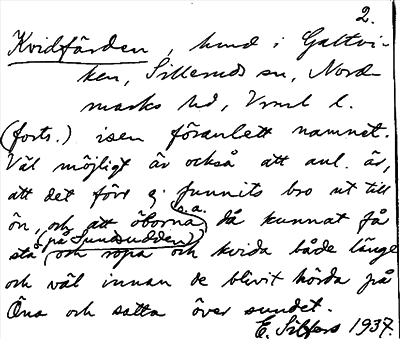 2.
Kvidfärden, sund i Gattvi-
ken, Silleruds sn, Nord-
marks hd, Vrml l.
(forts.) isen föranlett namnet.
Väl möjligt är också att anl. är,
att det förr ej funnits bro ut till
ön, och att öborna s.a. då kunnat få
stå på Sundsudden och ropa och kvida både länge
och väl innan de blivit hörda på
Öna och satta över sundet.
E. Silfors 1937.